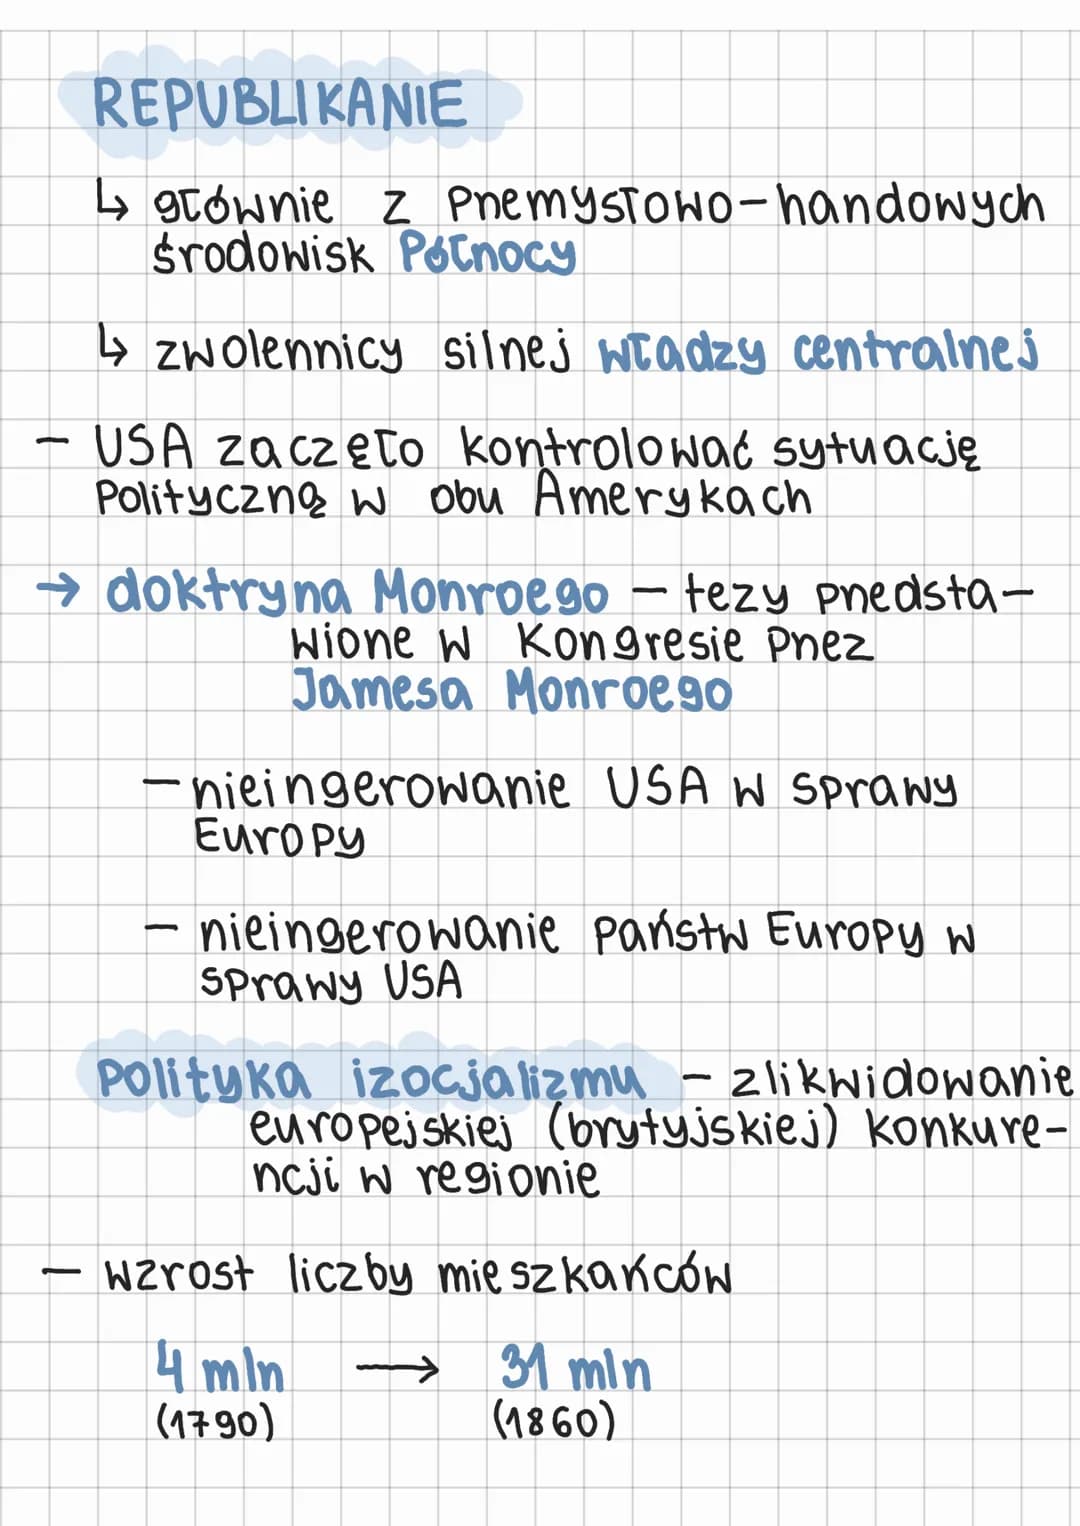 REPUBLIKANIE
↳ głównie z przemysłowo-handowych
środowisk Północy
↳ zwolennicy silnej władzy centralnej
- USA zaczęło kontrolować sytuację
polityczną w obu Amerykach
→ doktryna Monroego - tezy przedsta-
wione w Kongresie przez
Jamesa Monroego
- nieingerowanie USA w sprawy
Europy
- nieingerowanie państw Europy w
sprawy USA
polityka izocjalizmu - zlikwidowanie
europejskiej (brytyjskiej) konkure-
ncji w regionie
- wzrost liczby mieszkańców
4 mln → 31 mln
(1790) (1860)